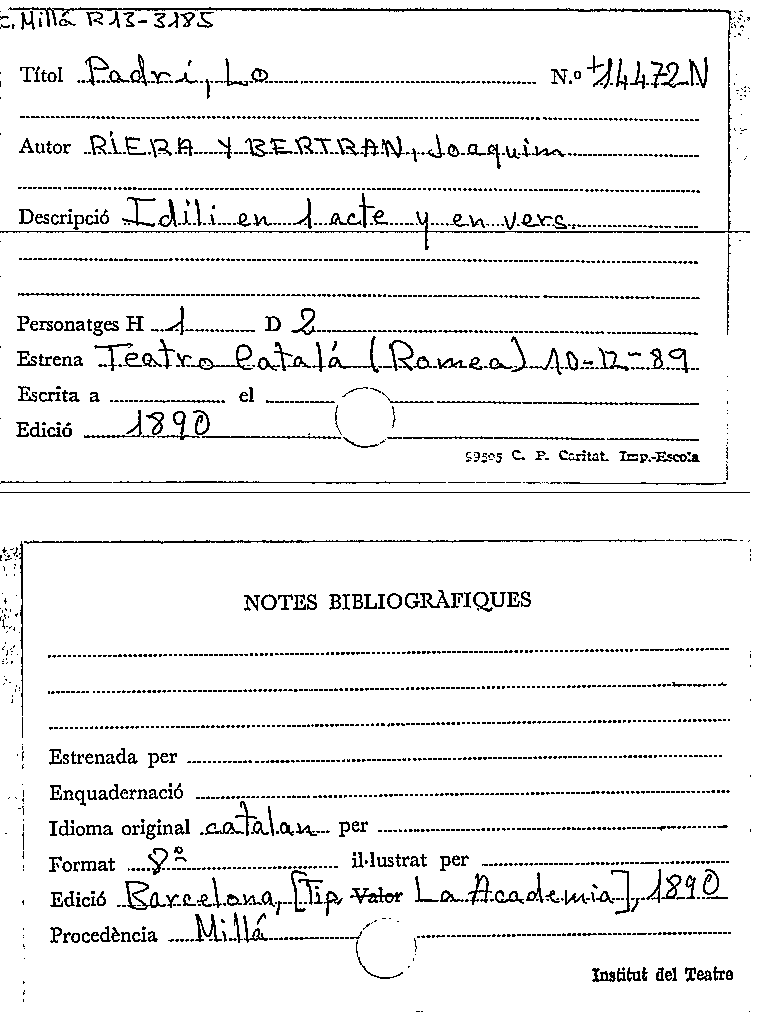 C. Millá R13-3185
Títol Padrí, Lo N.º +14472N
Autor RIERA Y BERTRAN, Joaquim
Descripció Idili en 1 acte y en vers.
Personatges H 1 D 2
Estrena Teatro Catalá (Romea) 10-12-89
Escrita a el
Edició 1890
59595 C. P. Caritat. Imp.-Escola
NOTES BIBLIOGRÀFIQUES
Estrenada per
Enquadernació
Idioma original catalan per
Format 8º il·lustrat per
Edició Barcelona, [Tip. Valor La Academia], 1890
Procedència Millá
Institut del Teatre